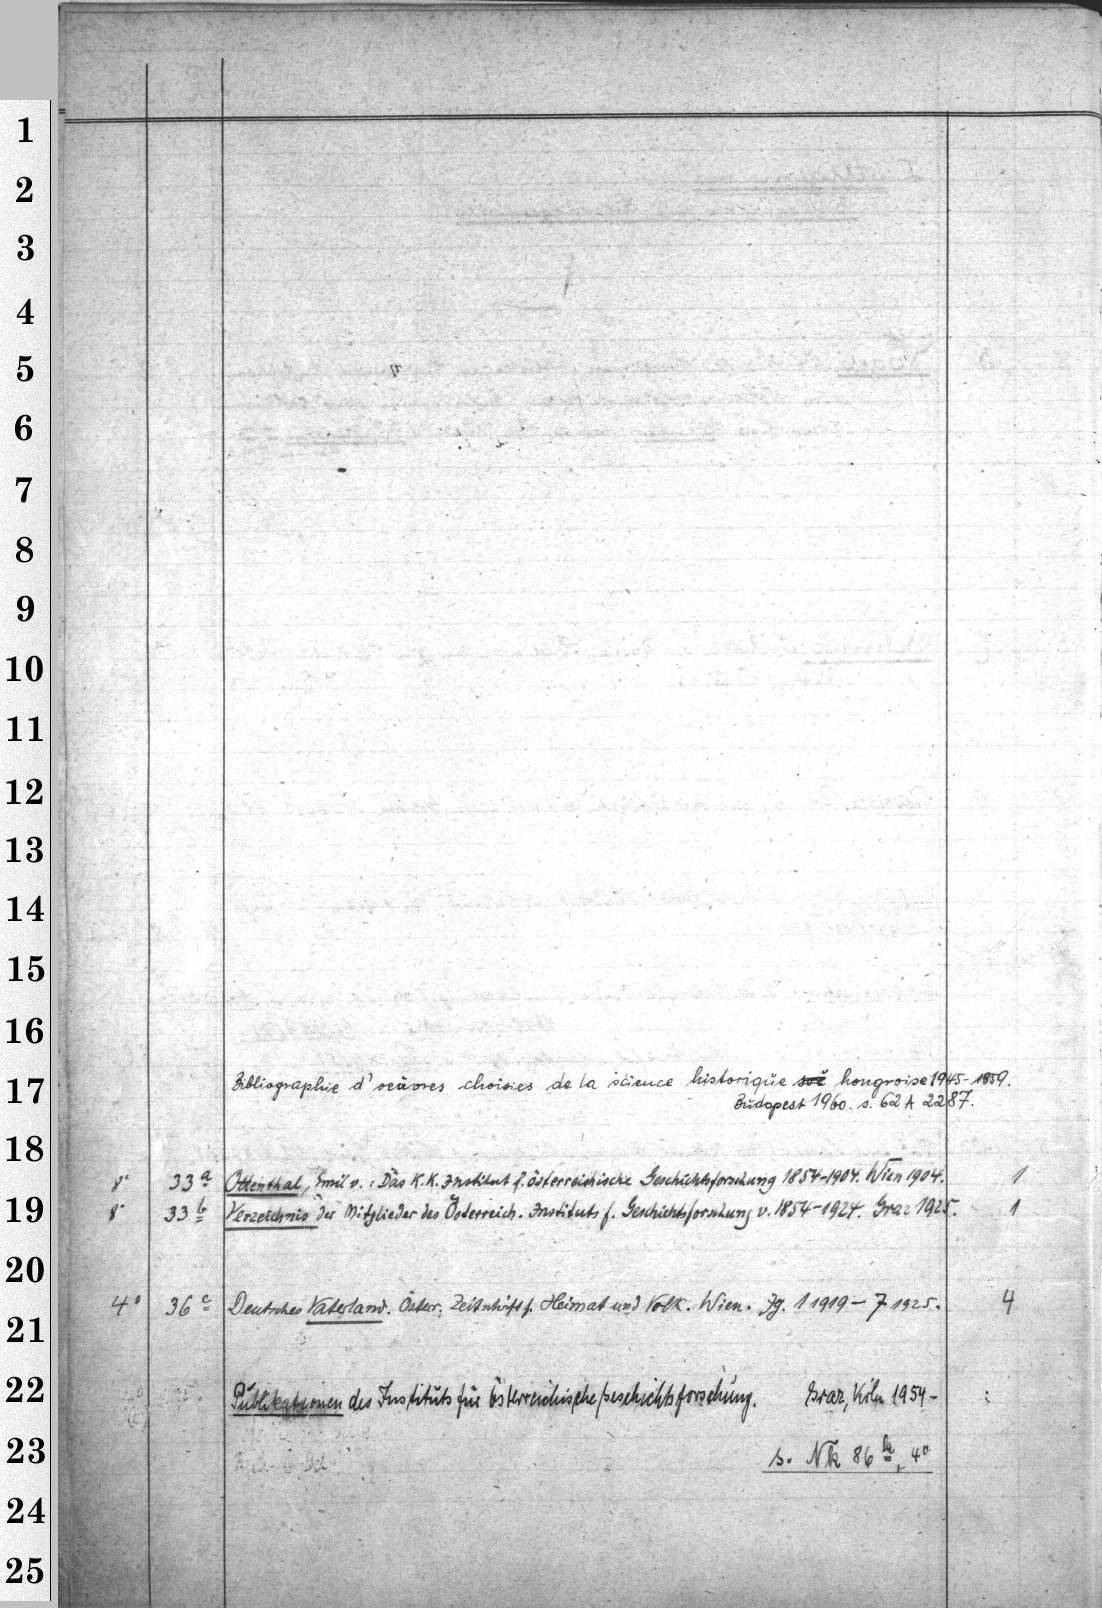 1
2
3
4
5
6
7
8
9
10
11
12
13
14
15
16
17
Bibliographie d'oeuvres choisies de la science historique hongroise 1945-1959.
Budapest 1960. s. 62 A 2287.
18
8° 33 a Ottenthal, Emil v.: Das K.K. Institut f. österreichische Geschichtsforschung 1854-1904. Wien 1904. 1
19
8° 33 b Verzeichnis der Mitglieder des Österreich. Instituts f. Geschichtsforschung v. 1854-1924. Graz 1925. 1
20
4° 36 c Deutsches Vaterland. Österr. Zeitschrift f. Heimat und Volk. Wien. Jg. 1 1919 - 7 1925. 4
21
22
Publikationen des Instituts für österreichische Geschichtsforschung. Graz, Köln 1954-
23
s. Nk 86 k, 4°
24
25